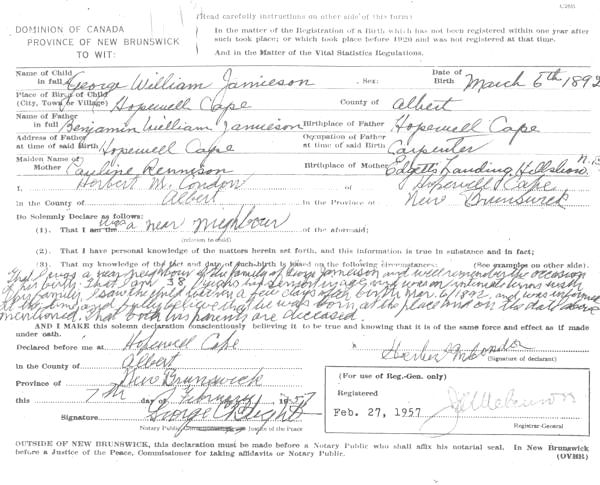 (Read carefully instructions on other side of this form)
DOMINION OF CANADA
PROVINCE OF NEW BRUNSWICK
TO WIT:
In the matter of the Registration of a Birth which has not been registered within one year after
such took place; or which took place before 1920 and was not registered at that time.
And in the Matter of the Vital Statistics Regulations.
Name of Child in full George William Jamieson Sex: Date of Birth March 6th 1892
Place of Birth of Child (City, Town or Village) Hopewell Cape County of Albert
Name of Father in full Benjamin William Jamieson Birthplace of Father Hopewell Cape
Address of Father at time of said Birth Hopewell Cape Occupation of Father at time of said Birth Carpenter
Maiden Name of Mother Pauline Rennison Birthplace of Mother Edgetts Landing Hillsboro N.B.
I, Herbert M. Condon of Hopewell Cape
in the County of Albert in the Province of New Brunswick
Do Solemnly Declare as follows:
(1). That I am the was a near neighbour of the aforesaid;
(relation to child)
(2). That I have personal knowledge of the matters herein set forth, and this information is true in substance and in fact;
(3). That my knowledge of the fact and date of such birth is based on the following circumstances: (See examples on other side).
That I was a near neighbour of the family of George Jamieson and well remember the occasion
of his birth. That I am years his senior in age and was on intimate terms with
his family. I saw the child within a few days after birth Mar. 6/1892 and was informed
at the time and fully believe that he was born at the place and on the date above
mentioned. That both his parents are deceased.
AND I MAKE this solemn declaration conscientiously believing it to be true and knowing that it is of the same force and effect as if made
under oath.
Declared before me at Hopewell Cape
in the County of Albert
Province of New Brunswick
this 7th day of February 1957
Signature George
Notary Public Justice of the Peace
x Herbert M Condon
(Signature of declarant)
(For use of Reg.-Gen. only)
Registered
Feb. 27, 1957
Registrar-General
OUTSIDE OF NEW BRUNSWICK, this declaration must be made before a Notary Public who shall affix his notarial seal. In New Brunswick
before a Justice of the Peace, Commissioner for taking affidavits or Notary Public. (OVER)